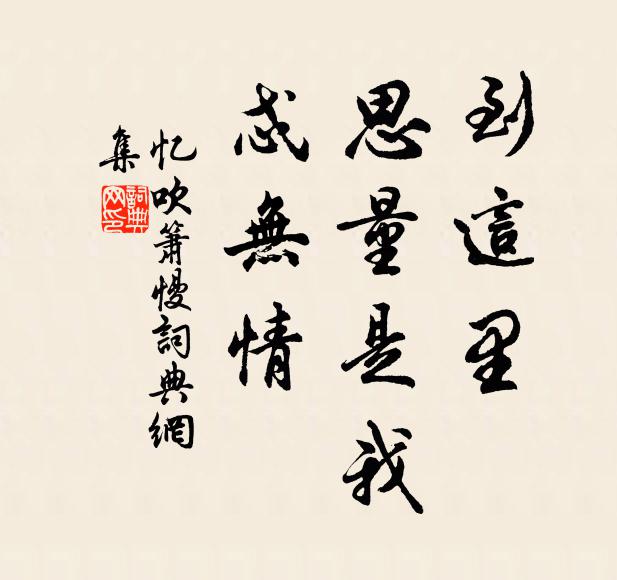 到這里
思量是我
忒無情
忆吹簫慢詞典網
集
詞典
网印